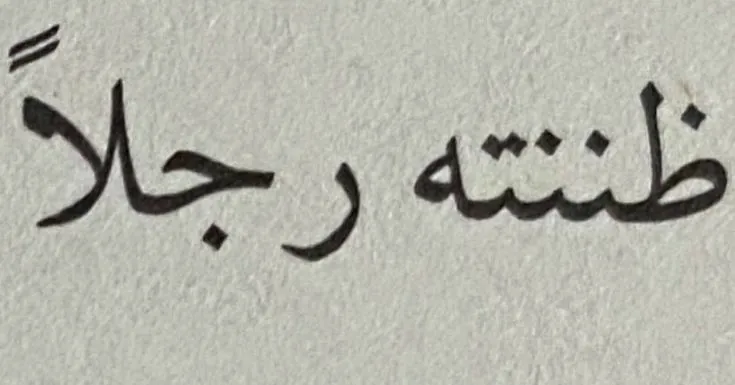 ظننته رجلاً